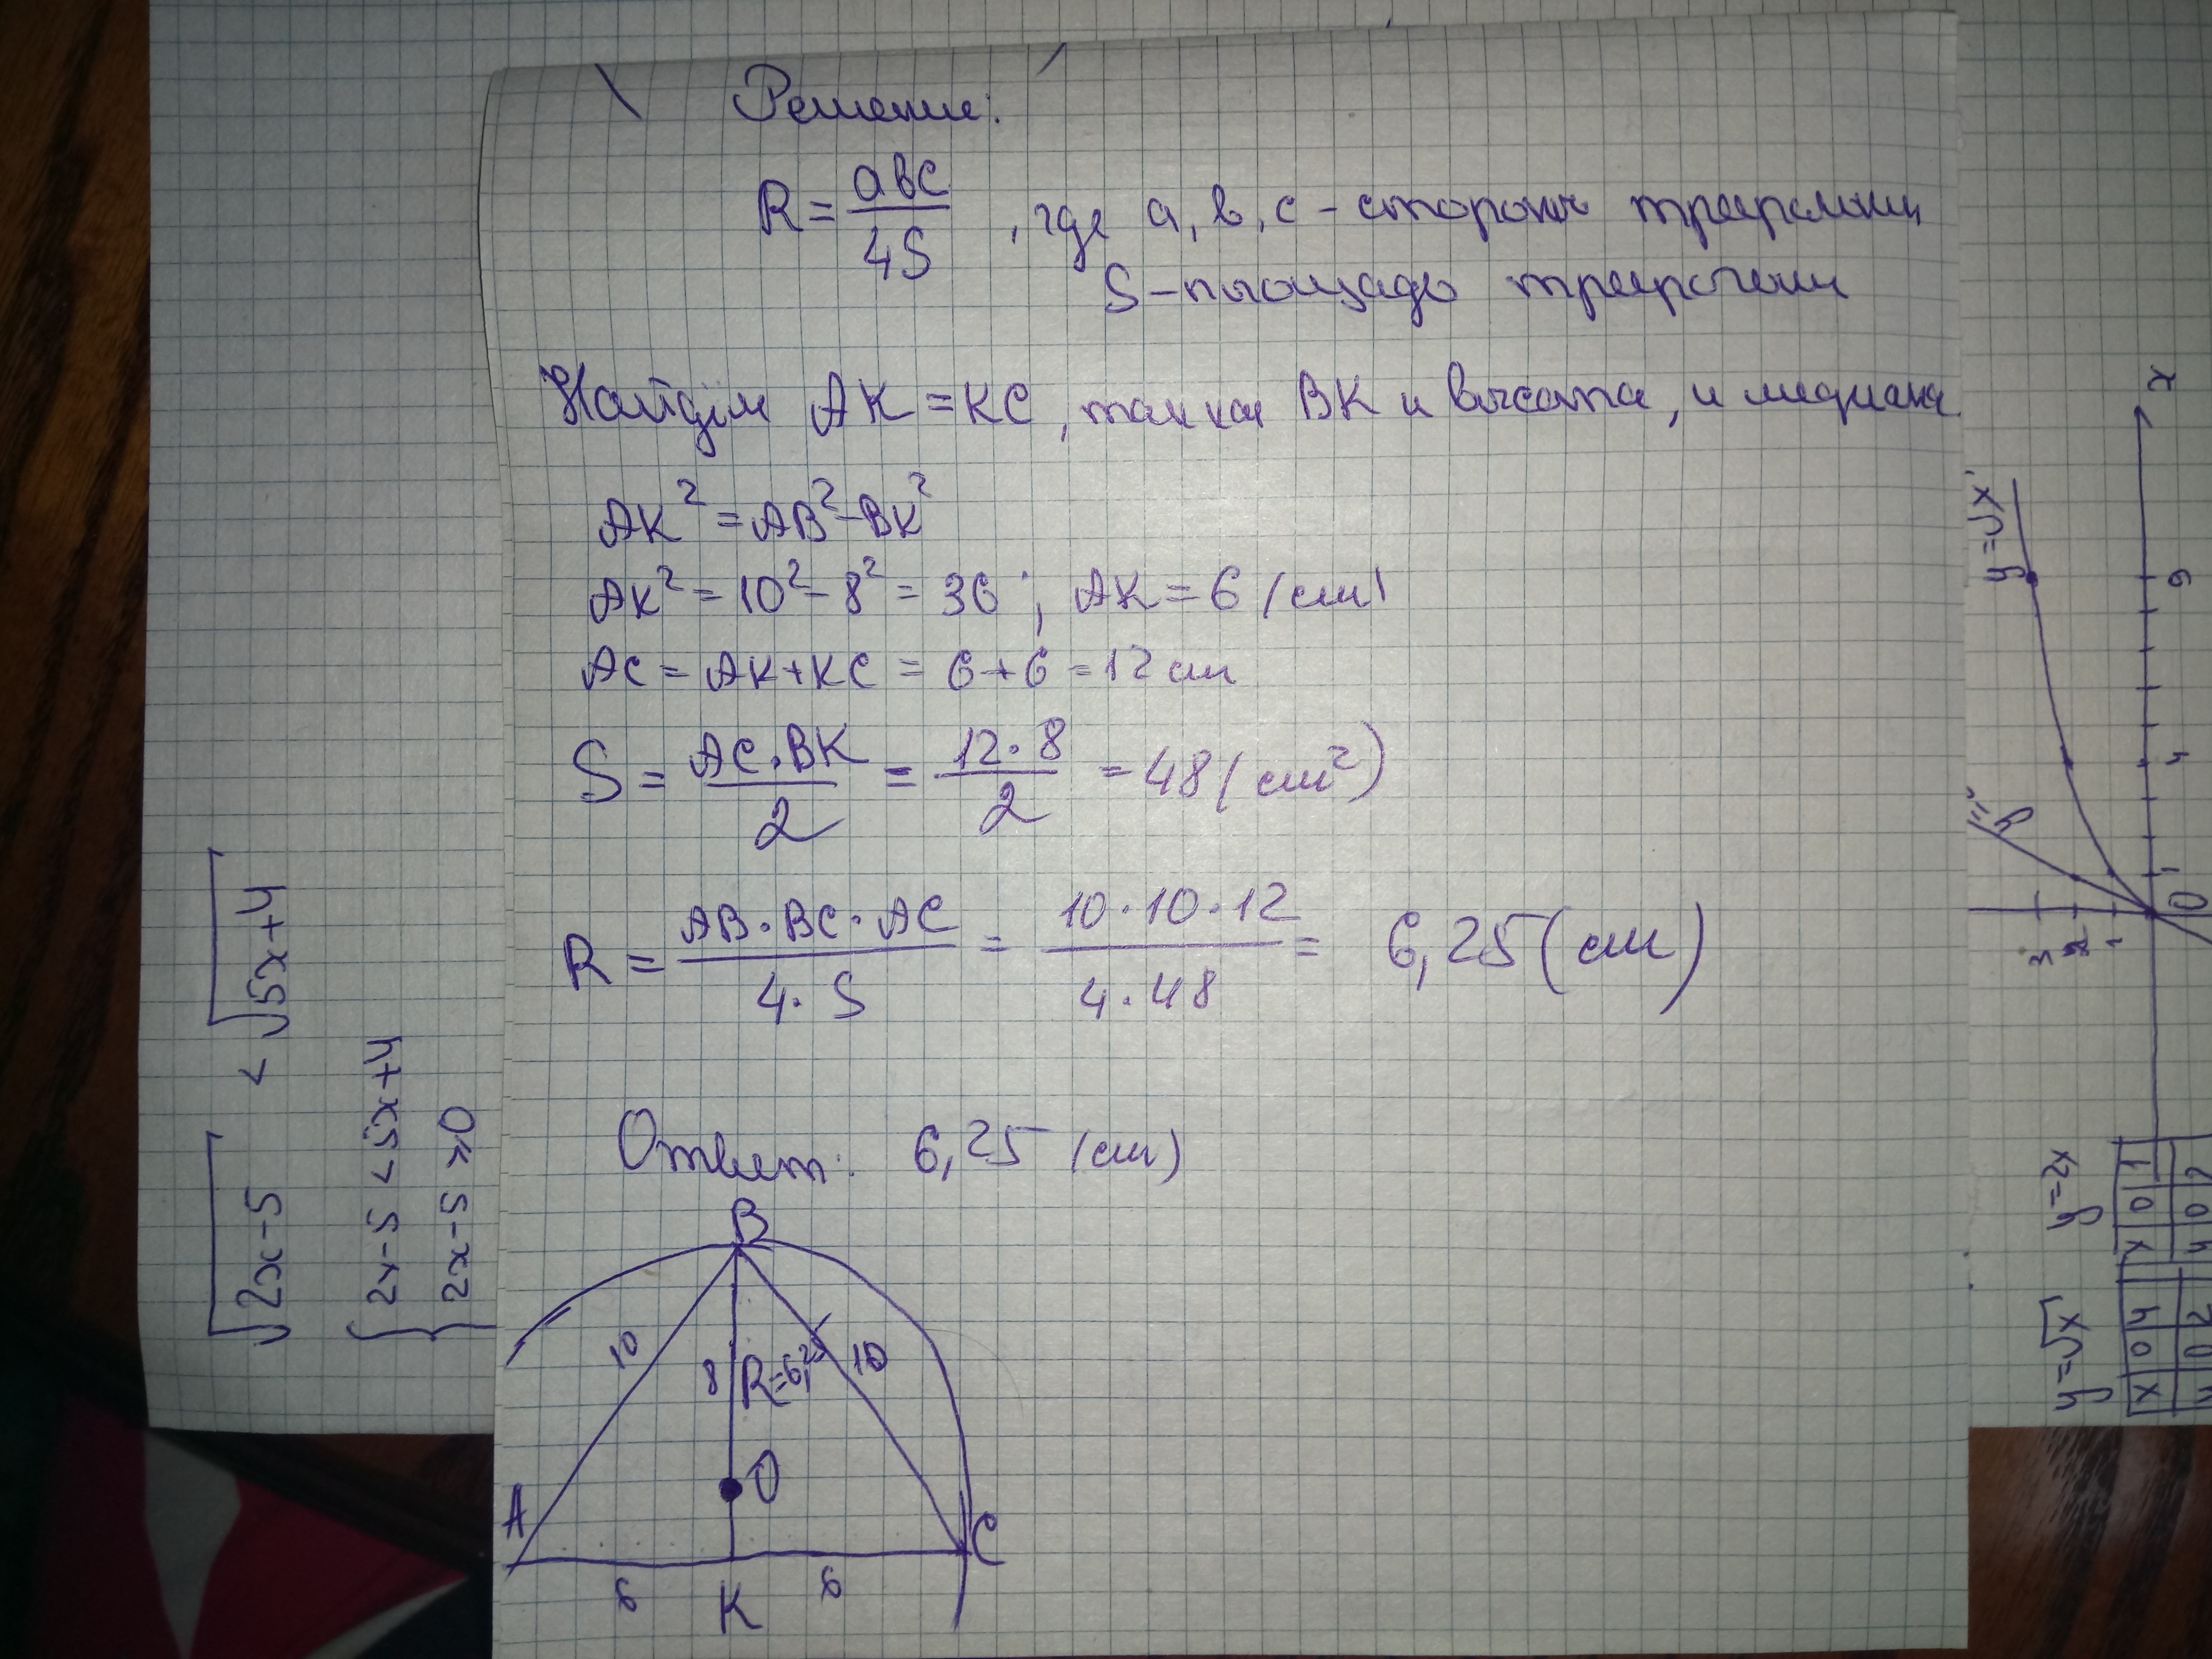 Решение:
R = abc / 4S , где a, b, c - стороны
S - площадь
Найдём AK = KC, так как BK и высота, и медиана
AK² = AB² - BK²
AK² = 10² - 8² = 36 ; AK = 6 (см)
AC = AK + KC = 6 + 6 = 12 см
S = AC · BK / 2 = 12 · 8 / 2 = 48 (см²)
R = AB · BC · AC / 4 · S = 10 · 10 · 12 / 4 · 48 = 6,25 (см)
Ответ: 6,25 (см)
B
10 8 R=6,25 10
O
A C
6 K 6
√2x-5 < √5x+4
{ 2x-5 < 5x+4
2x-5 ≥ 0
y=√x y=2x
x 0 4 x 0 1
y 0 2 y 0 2
y=√x
x
0 1 4 9
1 2 3